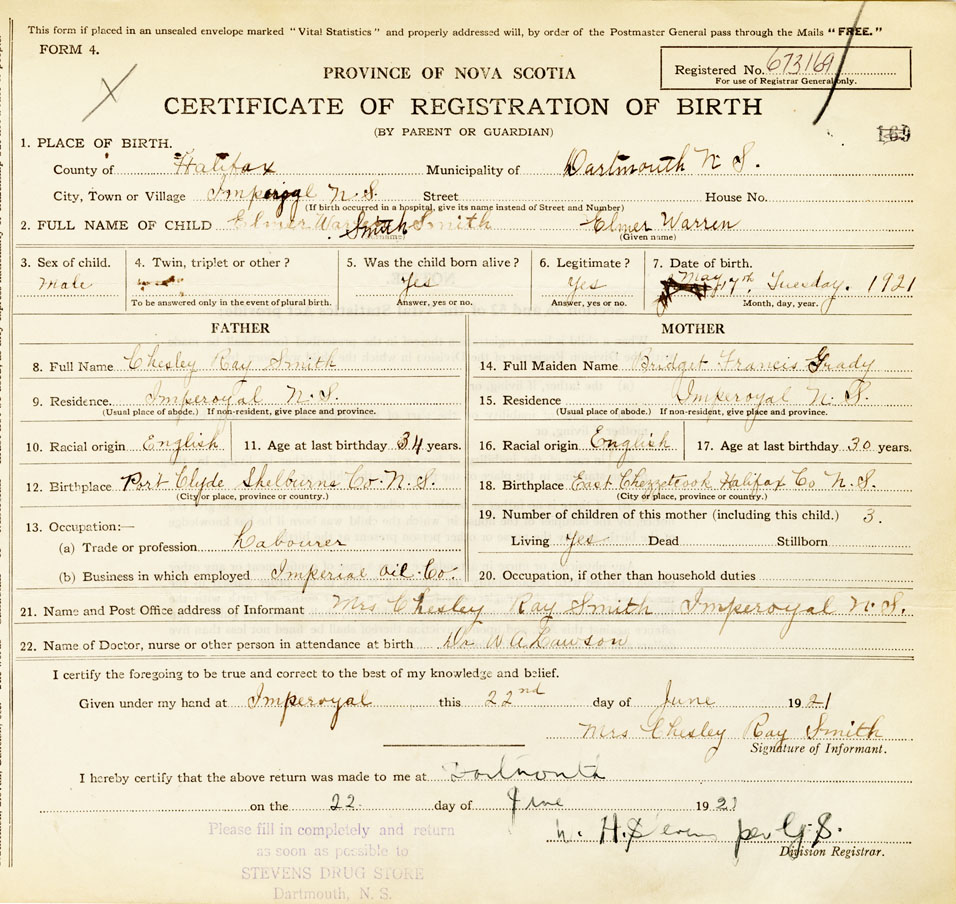 This form if placed in an unsealed envelope marked "Vital Statistics" and properly addressed will, by order of the Postmaster General pass through the Mails "FREE."
FORM 4.
Registered No. 673169
For use of Registrar General only.
PROVINCE OF NOVA SCOTIA
CERTIFICATE OF REGISTRATION OF BIRTH
(BY PARENT OR GUARDIAN)
169
1. PLACE OF BIRTH.
County of Halifax Municipality of Dartmouth N S.
City, Town or Village Imperoyal N. S. Street House No.
(If birth occurred in a hospital, give its name instead of Street and Number)
2. FULL NAME OF CHILD Elmer Warren Smith Smith Elmer Warren
(Given name)
3. Sex of child. 4. Twin, triplet or other? 5. Was the child born alive? 6. Legitimate? 7. Date of birth.
male Yes Yes May 17th Tuesday. 1921
To be answered only in the event of plural birth. Answer, yes or no. Answer, yes or no. Month, day, year.
FATHER MOTHER
8. Full Name Chesley Ray Smith 14. Full Maiden Name Bridget Francis Grady
9. Residence. Imperoyal N. S. 15. Residence Imperoyal N. S.
(Usual place of abode.) If non-resident, give place and province. (Usual place of abode.) If non-resident, give place and province.
10. Racial origin English 11. Age at last birthday 34 years. 16. Racial origin English 17. Age at last birthday 30 years.
12. Birthplace Port Clyde Shelburns Co. N. S. 18. Birthplace East Chezzetcook Halifax Co N. S.
(City or place, province or country.) (City or place, province or country.)
13. Occupation:— 19. Number of children of this mother (including this child.) 3.
(a) Trade or profession Labourer Living Yes Dead Stillborn
(b) Business in which employed Imperial Oil Co. 20. Occupation, if other than household duties
21. Name and Post Office address of Informant Mrs Chesley Ray Smith Imperoyal N. S.
22. Name of Doctor, nurse or other person in attendance at birth Dr W A Lawson
I certify the foregoing to be true and correct to the best of my knowledge and belief.
Given under my hand at Imperoyal this 22nd day of June 1921
Mrs Chesley Ray Smith
Signature of Informant.
I hereby certify that the above return was made to me at Dartmouth
on the 22 day of June 1921
H. per G. S.
Division Registrar.
Please fill in completely and return
as soon as possible to
STEVENS DRUG STORE
Dartmouth, N. S.